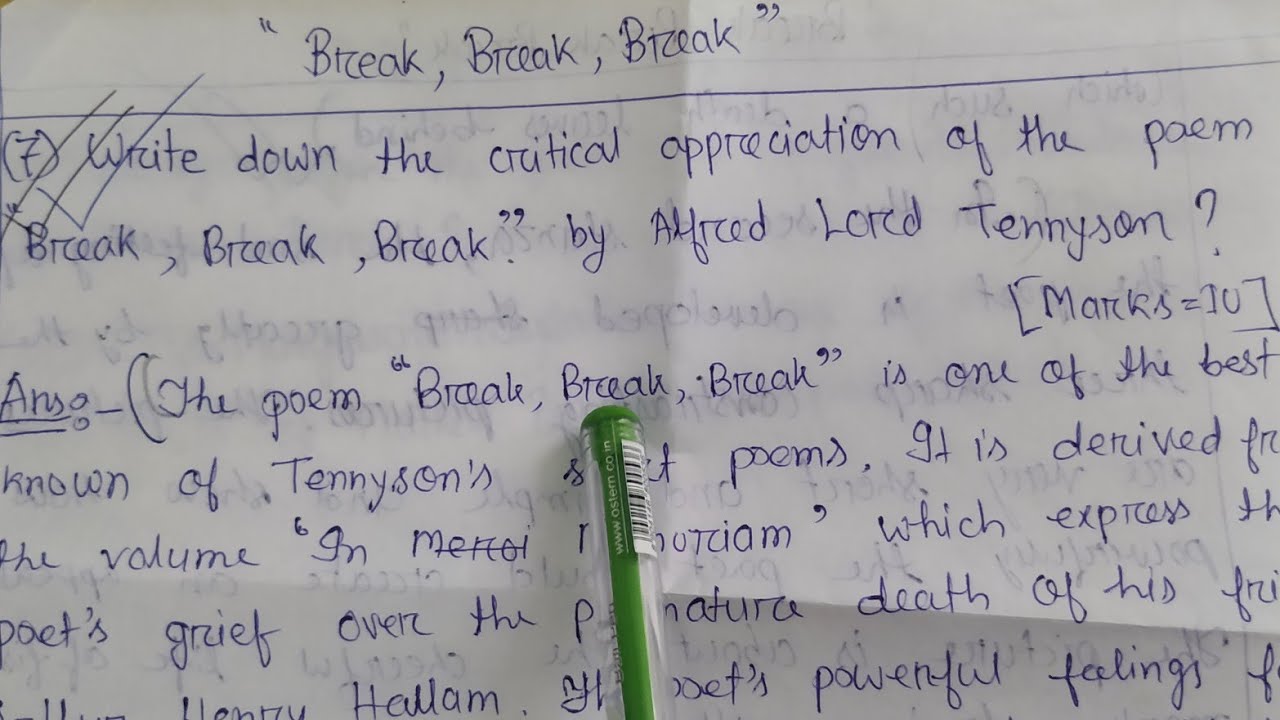 "Break, Break, Break"
(7) Write down the critical appreciation of the poem
"Break, Break, Break" by Alfred Lord Tennyson?
[Marks=10]
Ans:- (The poem "Break, Break, Break" is one of the best
known of Tennyson's poems. It is derived
the volume 'In which express
poet's grief over the death of his
Henry Hallam. poet's powerful feelings
www.ostern.co.in